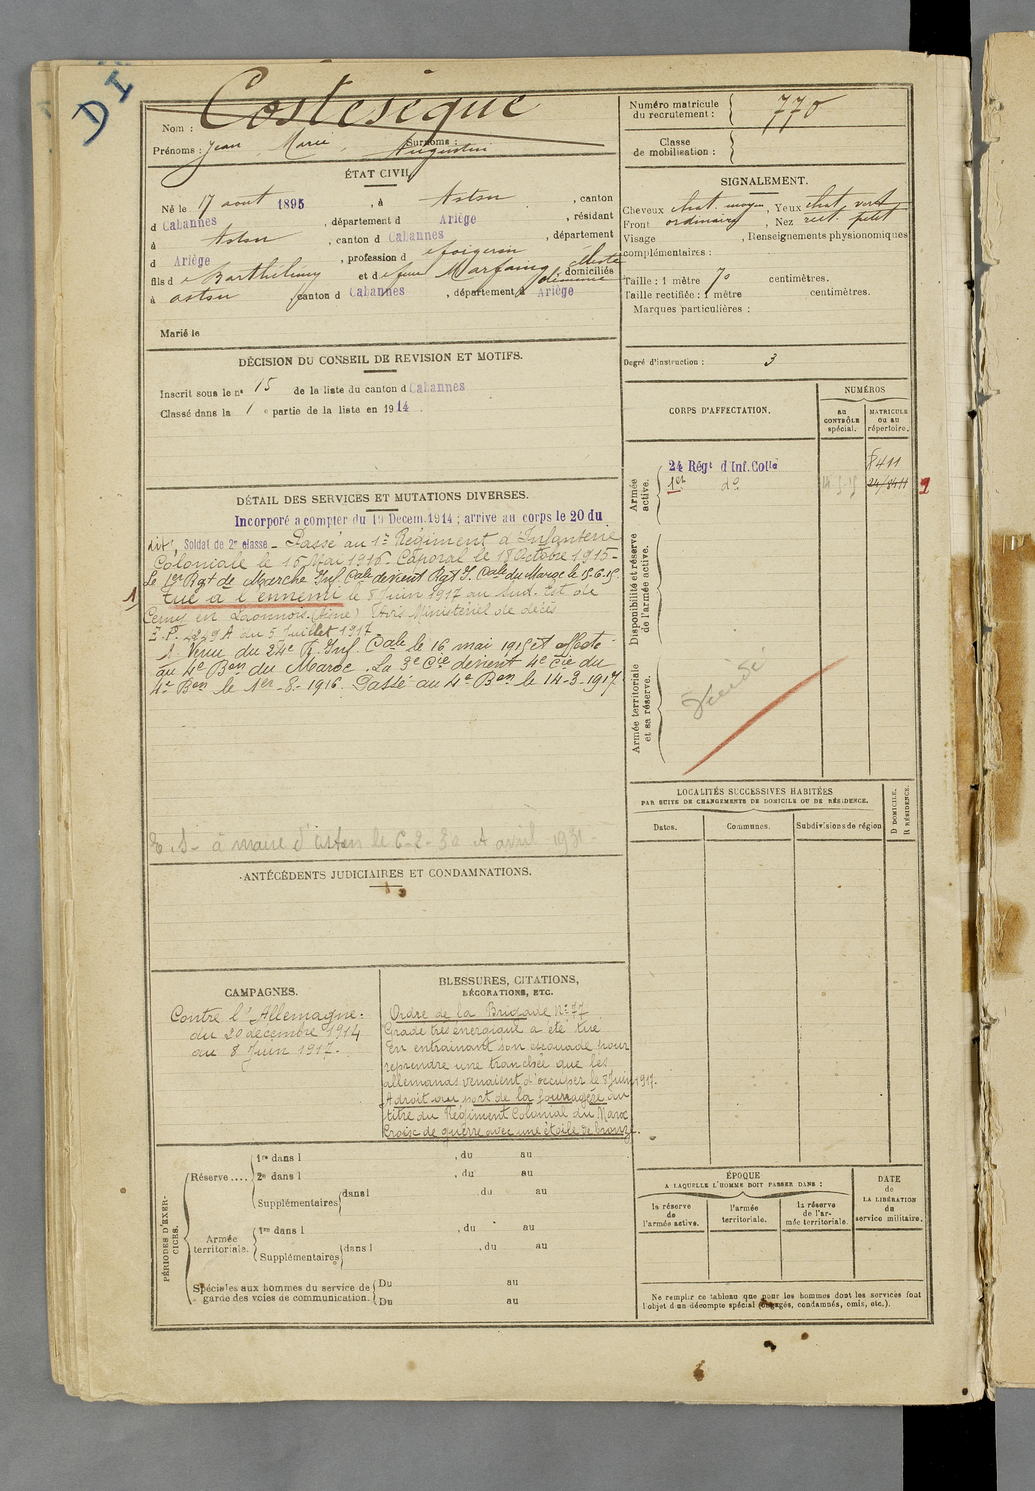 DI
Nom : Costesèque
Prénoms : Jean Marie Augustin Surnoms :
Numéro matricule du recrutement : 770
Classe de mobilisation :
ÉTAT CIVIL
Né le 17 aout 1895, à Aston, canton
d Cabannes, département d Ariège, résidant
à Aston, canton d Cabannes, département
d Ariège, profession d
fils de Barthélemy et de feue Marfaing domiciliés
à aston canton d Cabannes, département d Ariège
Marié le
SIGNALEMENT.
Cheveux chat. moyen, Yeux chat. vert
Front ordinaire, Nez rect. petit
Visage , Renseignements physionomiques
complémentaires :
Taille : 1 mètre 70 centimètres.
Taille rectifiée : 1 mètre centimètres.
Marques particulières :
Degré d'instruction : 3
DÉCISION DU CONSEIL DE REVISION ET MOTIFS.
Inscrit sous le n° 15 de la liste du canton d Cabannes
Classé dans la 1e partie de la liste en 1914.
CORPS D'AFFECTATION.
NUMÉROS
au CONTRÔLE spécial.
MATRICULE ou au répertoire.
Armée active.
24 Régt d'Inf. Colle 8411
1er do 24/8411
2
Disponibilité et réserve de l'armée active.
Armée territoriale et sa réserve.
Décédé
DÉTAIL DES SERVICES ET MUTATIONS DIVERSES.
Incorporé a compter du 19 Decem. 1914 ; arrive au corps le 20 du
dit, Soldat de 2e classe - Passé au 1er Régiment d'Infanterie
Coloniale le 16 Mai 1915 - Caporal le 18 Octobre 1915 -
Le 1er Rgt de Marche Inf. Cale devient Rgt I. Cale du Maroc le
1 Tué à l'ennemi le 8 Juin 1917 au Sud. Est de
Cerny en Laonnois (Aisne) Avis Ministériel de décès
du 5 Juillet 1917
1. Venu du 24e R. Inf. Cale le 16 mai 1915 et affecté
au 4e Bon du Maroc. La 3e Cie devient 4e Cie du
4e Bon le 1er-8-1916. Passé au 4e Bon le 14-3-1917
à maire d'Aston le 6-2-30 avril 1931 -
LOCALITÉS SUCCESSIVES HABITÉES
PAR SUITE DE CHANGEMENTS DE DOMICILE OU DE RÉSIDENCE.
Dates.
Communes.
Subdivisions de région
D DOMICILE.
R RÉSIDENCE.
ANTÉCÉDENTS JUDICIAIRES ET CONDAMNATIONS.
CAMPAGNES.
Contre l'Allemagne.
du 20 decembre 1914
au 8 Juin 1917.
BLESSURES, CITATIONS,
DÉCORATIONS, ETC.
Ordre de la Brigade N° 77
Gradé très énergique a été tué
En entrainant son escouade pour
reprendre une tranchée que les
allemands venaient d'occuper le 8 Juin 1917.
A droit au port de la fourragère au
titre du Régiment Colonial du Maroc
Croix de guerre avec une étoile de bronze.
PÉRIODES D'EXERCICES.
Réserve....
1re dans l , du au
2e dans l , du au
Supplémentaires dans l , du au
Armée territoriale.
1re dans l , du au
Supplémentaires dans l , du au
Spéciales aux hommes du service de garde des voies de communication.
Du au
Du au
ÉPOQUE
A LAQUELLE L'HOMME DOIT PASSER DANS :
la réserve de l'armée active.
l'armée territoriale.
la réserve de l'armée territoriale.
DATE de LA LIBÉRATION du service militaire.
Ne remplir ce tableau que pour les hommes dont les services font
l'objet d'un décompte spécial (engagés, condamnés, omis, etc.).